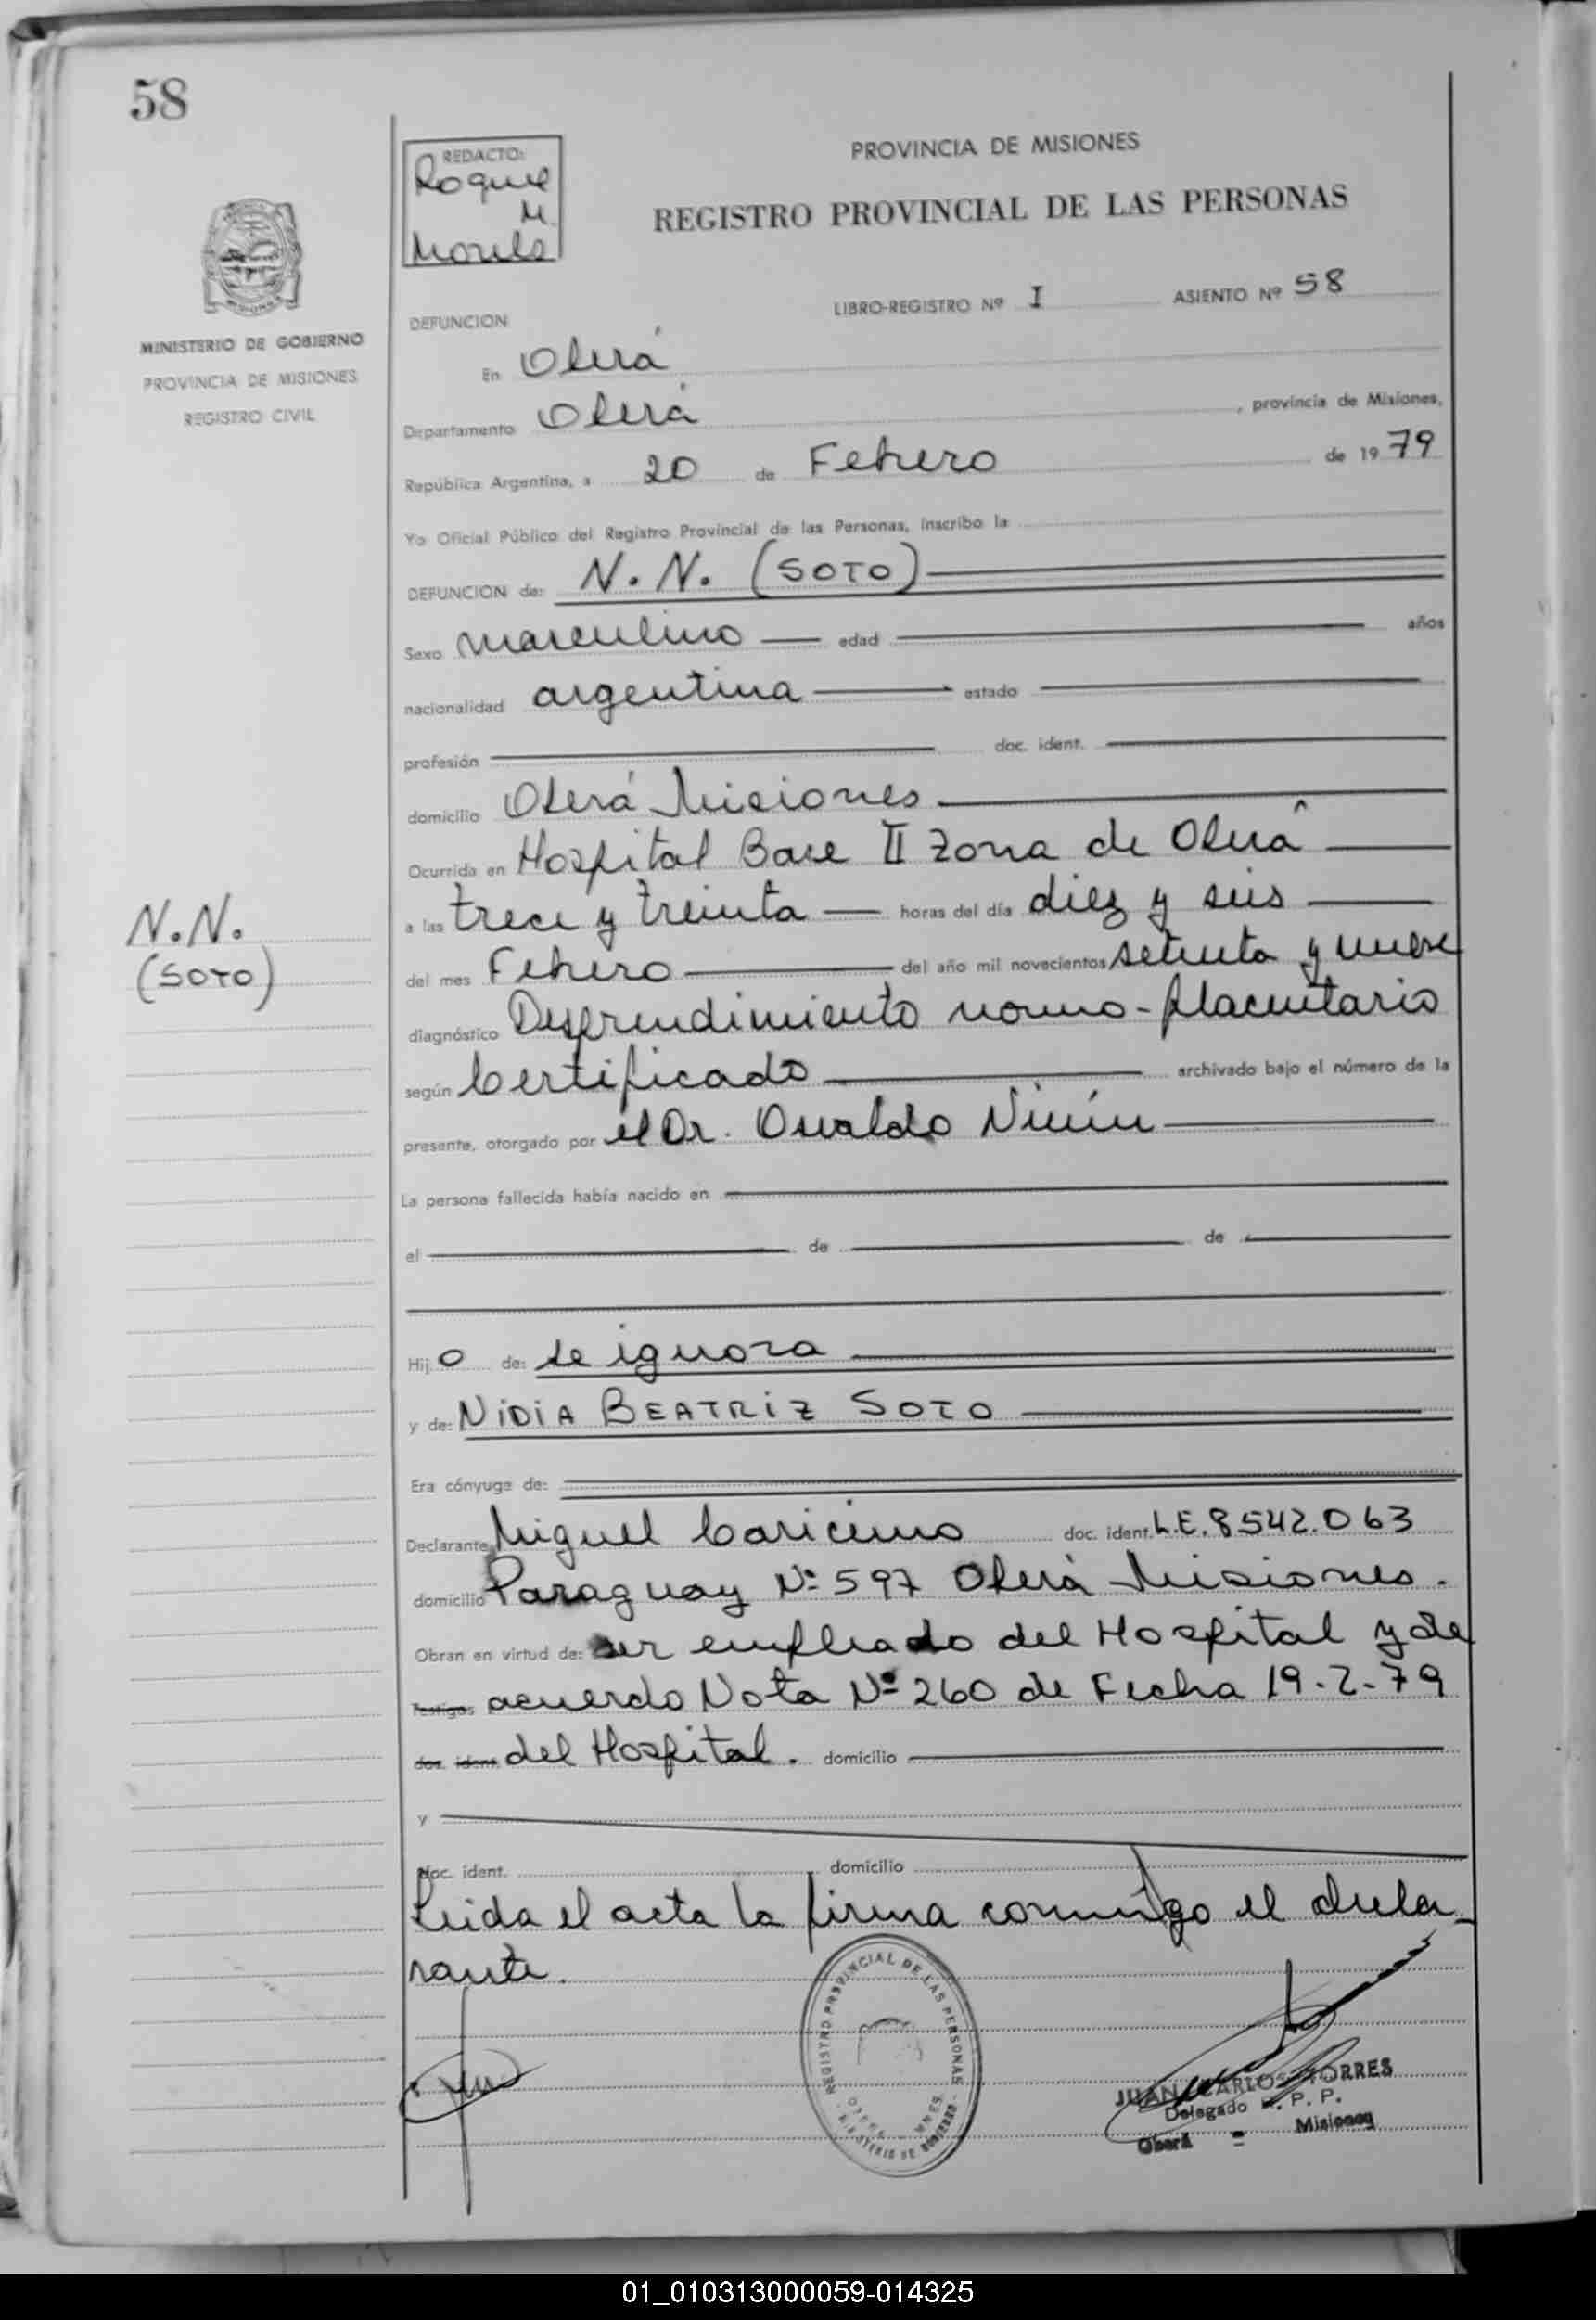 58
REDACTO:
Roque
M.
PROVINCIA DE MISIONES
REGISTRO PROVINCIAL DE LAS PERSONAS
MINISTERIO DE GOBIERNO
PROVINCIA DE MISIONES
REGISTRO CIVIL
LIBRO-REGISTRO Nº I ASIENTO Nº 58
DEFUNCION
En Oberá
Departamento Oberá, provincia de Misiones,
República Argentina, a 20 de Febrero de 1979
Yo Oficial Público del Registro Provincial de las Personas, inscribo la
DEFUNCION de: N.N. (SOTO)
Sexo masculino edad años
nacionalidad argentina estado
profesión doc. ident.
domicilio Oberá Misiones
Ocurrida en Hospital Base II Zona de Oberá
a las trece y treinta horas del día diez y seis
N.N.
(SOTO)
del mes Febrero del año mil novecientos setenta y nueve
diagnóstico Desprendimiento normo-placentario
según Certificado archivado bajo el número de la
presente, otorgado por el Dr. Osvaldo
La persona fallecida había nacido en
el de de
Hijo de: se ignora
y de: NIDIA BEATRIZ SOTO
Era cónyuge de:
Declarante Miguel doc. ident. L.E. 8542.063
domicilio Paraguay Nº 597 Oberá Misiones.
Obran en virtud de: ser empleado del Hospital y de
Testigos acuerdo Nota Nº 260 de Fecha 19-2-79
doc. ident. del Hospital. domicilio
y
doc. ident. domicilio
Leida el acta la firma conmigo el decla-
rante.
REGISTRO PROVINCIAL DE LAS PERSONAS
MINISTERIO DE GOBIERNO
JUAN CARLOS TORRES
Delegado R. P. P.
Oberá - Misiones
01_010313000059-014325